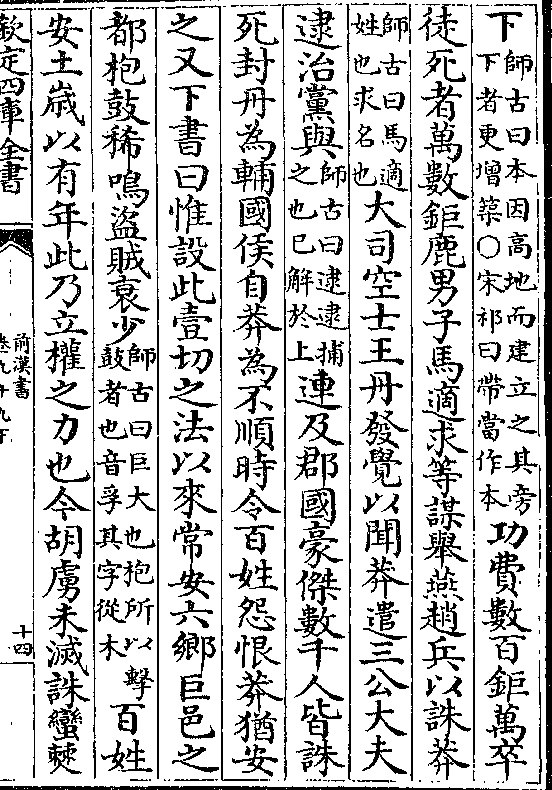 下師古曰本因高地而建立之其旁下者更增築○宋祁曰帶當作本功費數百鉅萬卒
徒死者萬數鉅鹿男子馬適求等謀舉燕趙兵以誅莽
師古曰馬適姓也求名也大司空士王丹發覺以聞莽遣三公大夫
逮治黨與師古曰逮逮捕之也已解於上連及郡國豪傑數千人皆誅
死封丹為輔國侯自莽為不順時令百姓怨恨莽猶安
之又下書曰惟設此壹切之法以來常安六鄉巨邑之
都枹鼓稀鳴盜賊衰少師古曰巨大也枹所以擊鼓者也音孚其字從木百姓
安土歲以有年此乃立權之力也今胡虜未滅誅蠻僰
欽定四庫全書
前漢書
卷九十九下
十四